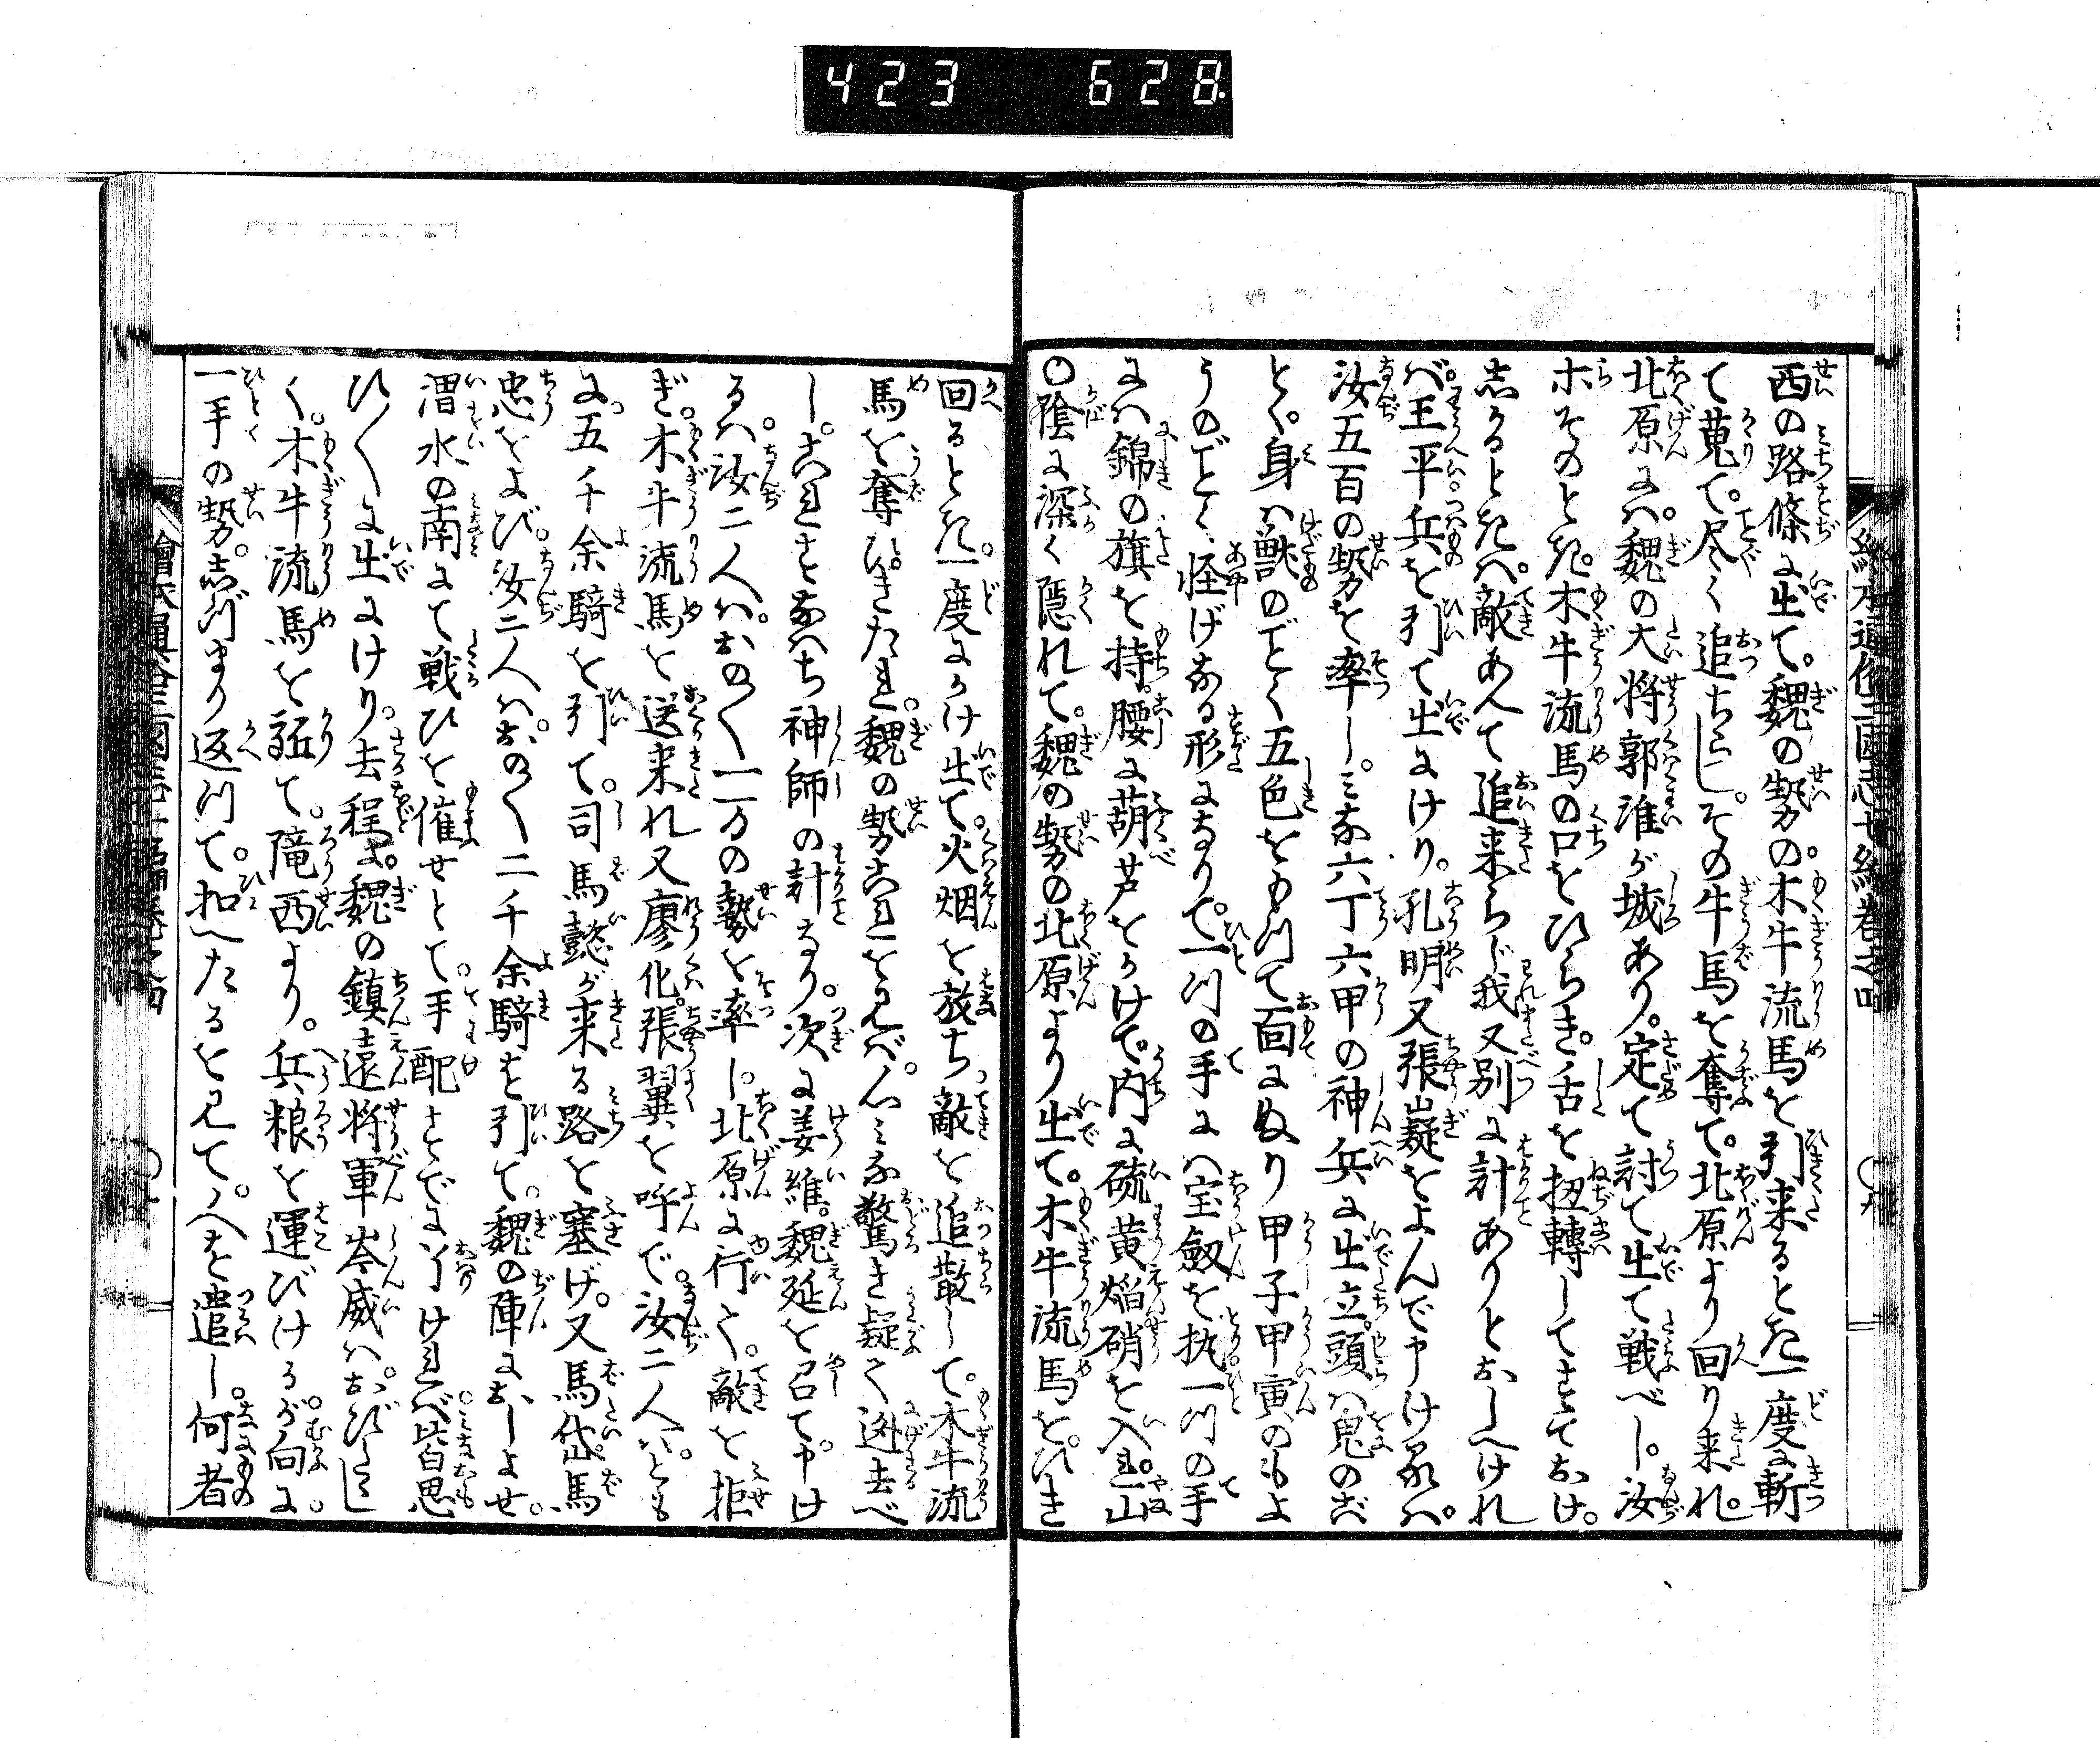 423 628
西の路條に出て。魏の勢の。木牛流馬を引来るとき一度に斬
て蒐て。尽く追ちらし。その牛馬を奪て。北原より回り来れ。
北原には。魏の大将郭淮が城あり。定て討て出て戦べし。汝
ホそのとき。木牛流馬の口をひらき。舌を扭轉してすておけ。
しかるときは。敵あへて追来らじ我又別に計ありとおしへけれ
ば。王平兵を引て出にけり。孔明又張嶷をよんで申けるは。
汝五百の勢を率し。みな六丁六甲の神兵に出立。頭は鬼のご
とく。身は獣のごとく五色をもつて面にぬり甲子甲寅のもよ
うのごとく。怪げなる形になりて。一ツの手には宝劔を执一ツの手
には錦の旗を持。腰に葫芦をかけて。内に硫黄焔硝を入れ。山
の陰に深く隠れて。魏の勢の北原より出て。木牛流馬を。ひき
回るとき。一度にかけ出て。火烟を放ち敵を追散して。木牛流
馬を奪ひきたれ。魏の勢これを見ば。人みな驚き疑て迯去べ
し。これすなはち神師の計なり。次に姜維。魏延を召て。申け
るは。汝二人は。おの〱一万の勢を率し。北原に行て。敵を拒
ぎ。木牛流馬を送来れ又廖化。張翼を呼で。汝二人は。とも
に。五千余騎を引て。司馬懿が来る路を塞げ。又馬岱。馬
忠をよび。汝二人は。おの〱二千余騎を引て。魏の陣におしよせ。
渭水の南にて戦ひを催せとて。手配すでに了ければ。皆思
ひ〱に出にけり。去程に。魏の鎮遠将軍岑威は。おびたゝし
く。木牛流馬を証て。隴西より。兵粮を運びけるが。向に。
一手の勢。しづまり返ツて。扣へたるを見て。人を遣し。何者